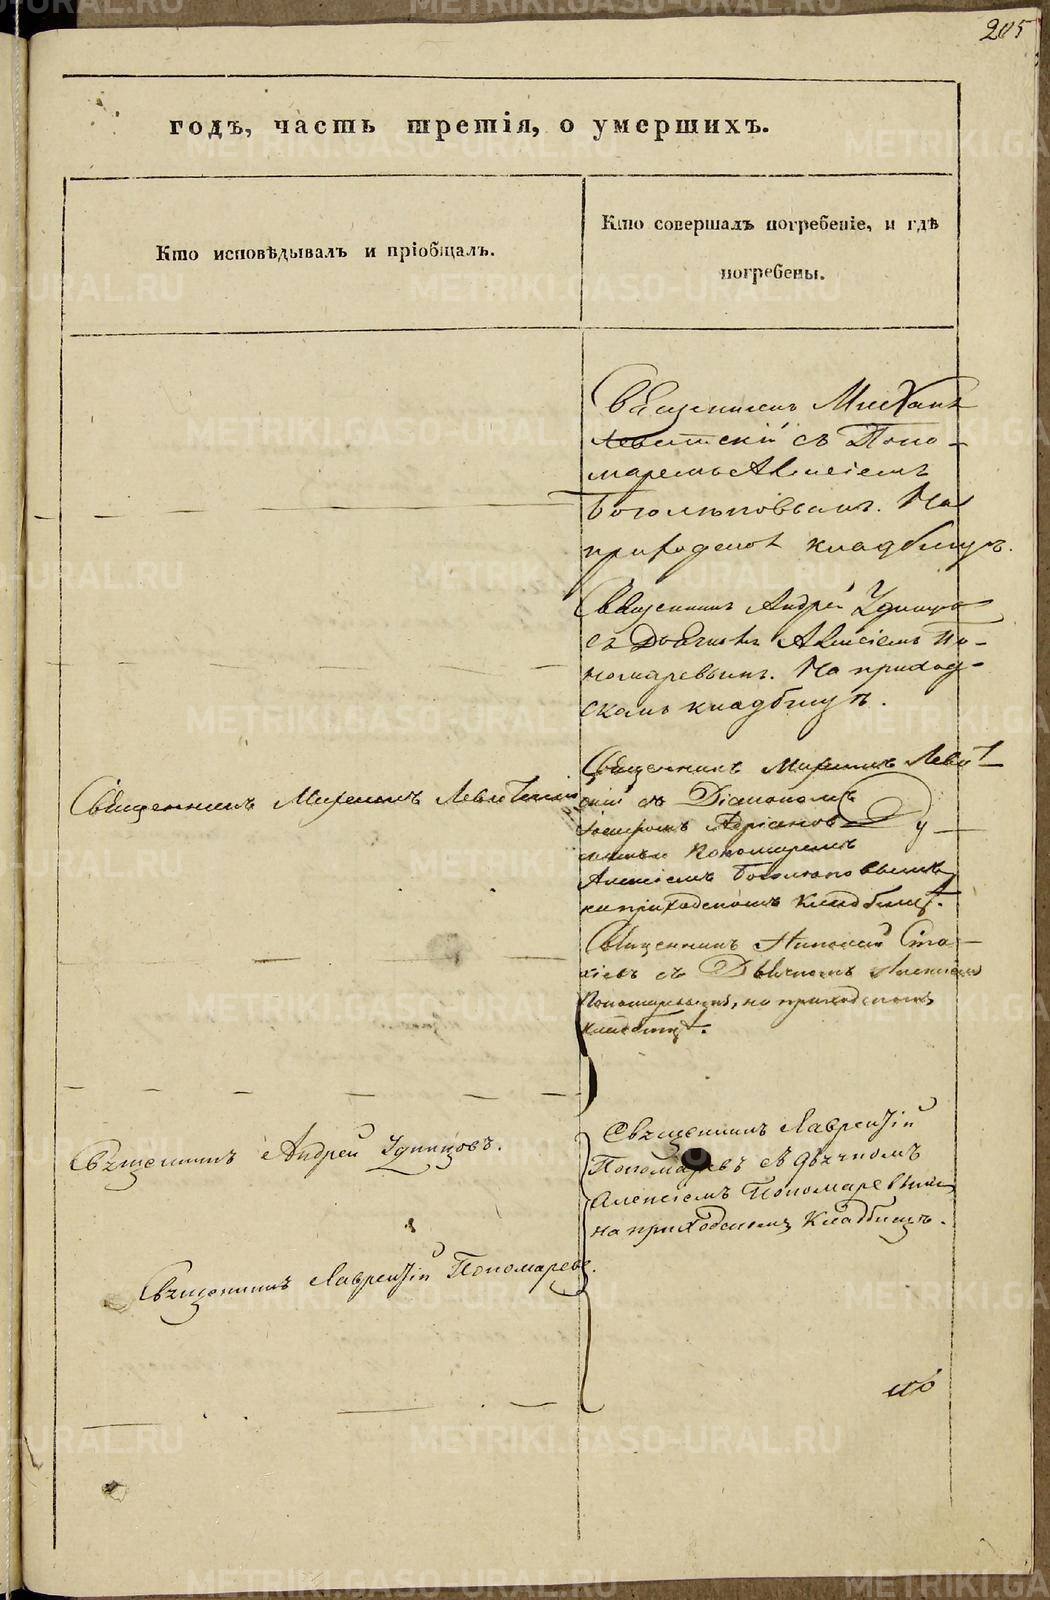 205
годъ, часть третія, о умершихъ.
Кто исповѣдывалъ и пріобщалъ.
Кто совершалъ погребеніе, и гдѣ
погребены.
Священникъ Михаилъ
Левитскій съ Поно-
маремъ Алексіемъ
Боголѣповымъ. На
приходскомъ кладбищѣ.
Священникъ Андрей Удинцов
съ Дьячкомъ Алексіемъ По-
номаревымъ. На приход-
скомъ кладбищѣ.
Священникъ Михаилъ Левитскій
Священникъ Михаилъ Левит-
скій съ Діакономъ
Адріановъ
Пономаремъ
Алексіемъ Боголѣповымъ
на приходскомъ кладбищѣ.
Священникъ Николай Ста-
хіевъ съ Дьячкомъ Алексіемъ
Пономаревымъ, на приходскомъ
кладбищѣ.
Священникъ Андрей Удинцовъ.
Священникъ Лаврентій
Пономаревъ съ дьячкомъ
Алексіемъ Пономаревымъ
на приходскомъ Кладбищѣ.
Священникъ Лаврентій Пономаревъ.
METRIKI.GASO-URAL.RU